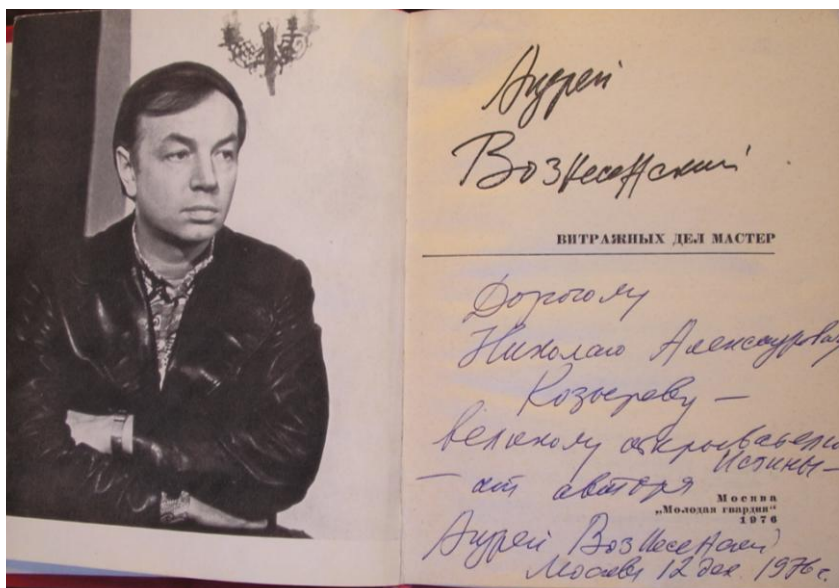 Андрей
Вознесенский
ВИТРАЖНЫХ ДЕЛ МАСТЕР
Дорогому
Николаю Александрович
Козыреву —
великому открывателю
Истины —
— от автора
Москва
„Молодая гвардия“
1976
Андрей Вознесенский
Москва 12 дек 1976 г